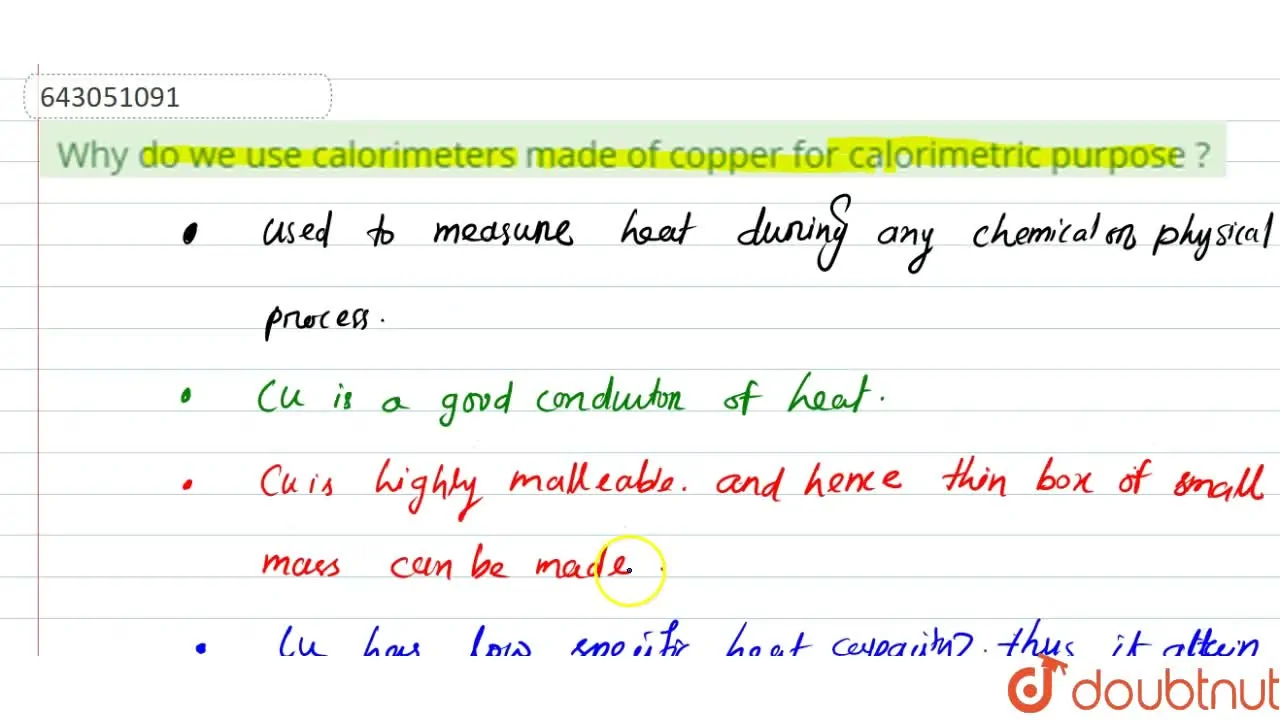 643051091
Why do we use calorimeters made of copper for calorimetric purpose ?
• used to measure heat during any chemical or physical
process.
• Cu is a good conductor of heat.
• Cu is highly malleable. and hence thin box of small
mass can be made.
• Cu has low specific heat capacity. thus it attain
doubtnut